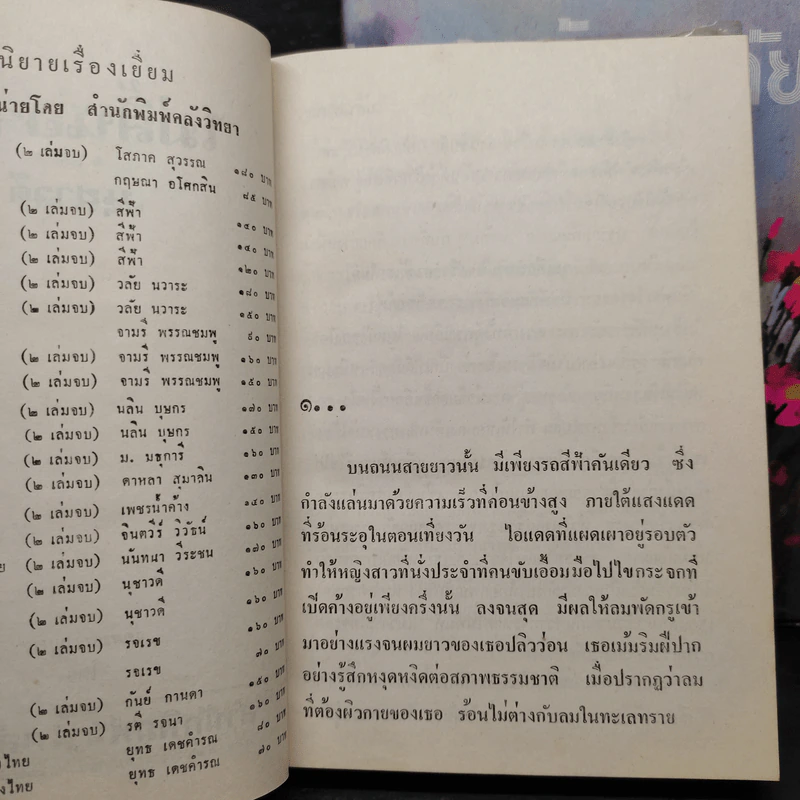 นิยายเรื่องเยี่ยม
น่ายโดย สำนักพิมพ์คลังวิทยา
(๒ เล่มจบ) โสภาค สุวรรณ ๑๘๐ บาท
กฤษณา อโศกสิน ๘๕ บาท
(๒ เล่มจบ) สีฟ้า ๑๔๐ บาท
(๒ เล่มจบ) สีฟ้า ๑๔๐ บาท
(๒ เล่มจบ) สีฟ้า ๑๒๐ บาท
(๒ เล่มจบ) วลัย นวาระ ๑๘๐ บาท
(๒ เล่มจบ) วลัย นวาระ ๑๕๐ บาท
จามรี พรรณชมพู ๙๐ บาท
(๒ เล่มจบ) จามรี พรรณชมพู ๑๖๐ บาท
(๒ เล่มจบ) จามรี พรรณชมพู ๑๕๐ บาท
(๒ เล่มจบ) นลิน บุษกร ๑๗๐ บาท
(๒ เล่มจบ) นลิน บุษกร ๑๕๐ บาท
(๒ เล่มจบ) ม. มธุการี ๑๖๐ บาท
(๒ เล่มจบ) ดาหลา สุมาลิน ๑๓๐ บาท
(๒ เล่มจบ) เพชรน้ำค้าง ๑๔๐ บาท
(๒ เล่มจบ) จินตวีร์ วิวัธน์ ๑๖๐ บาท
(๒ เล่มจบ) นันทนา วีระชน ๑๗๐ บาท
(๒ เล่มจบ) นุชาวดี ๑๖๐ บาท
(๒ เล่มจบ) นุชาวดี ๑๖๐ บาท
(๒ เล่มจบ) รจเรข ๑๖๐ บาท
รจเรข ๗๐ บาท
(๒ เล่มจบ) กันย์ กานดา ๑๕๐ บาท
(๒ เล่มจบ) รตี รจนา ๑๖๐ บาท
ยุทธ เดชคำรณ ๘๐ บาท
ยุทธ เดชคำรณ ๗๐ บาท
๑...
บนถนนสายยาวนั้น มีเพียงรถสีฟ้าคันเดียว ซึ่ง
กำลังแล่นมาด้วยความเร็วที่ค่อนข้างสูง ภายใต้แสงแดด
ที่ร้อนระอุในตอนเที่ยงวัน ไอแดดที่แผดเผาอยู่รอบตัว
ทำให้หญิงสาวที่นั่งประจำที่คนขับเอื้อมมือไปไขกระจกที่
เปิดค้างอยู่เพียงครึ่งนั้น ลงจนสุด มีผลให้ลมพัดกรูเข้า
มาอย่างแรงจนผมยาวของเธอปลิวว่อน เธอเม้มริมฝีปาก
อย่างรู้สึกหงุดหงิดต่อสภาพธรรมชาติ เมื่อปรากฏว่าลม
ที่ต้องผิวกายของเธอ ร้อนไม่ต่างกับลมในทะเลทราย